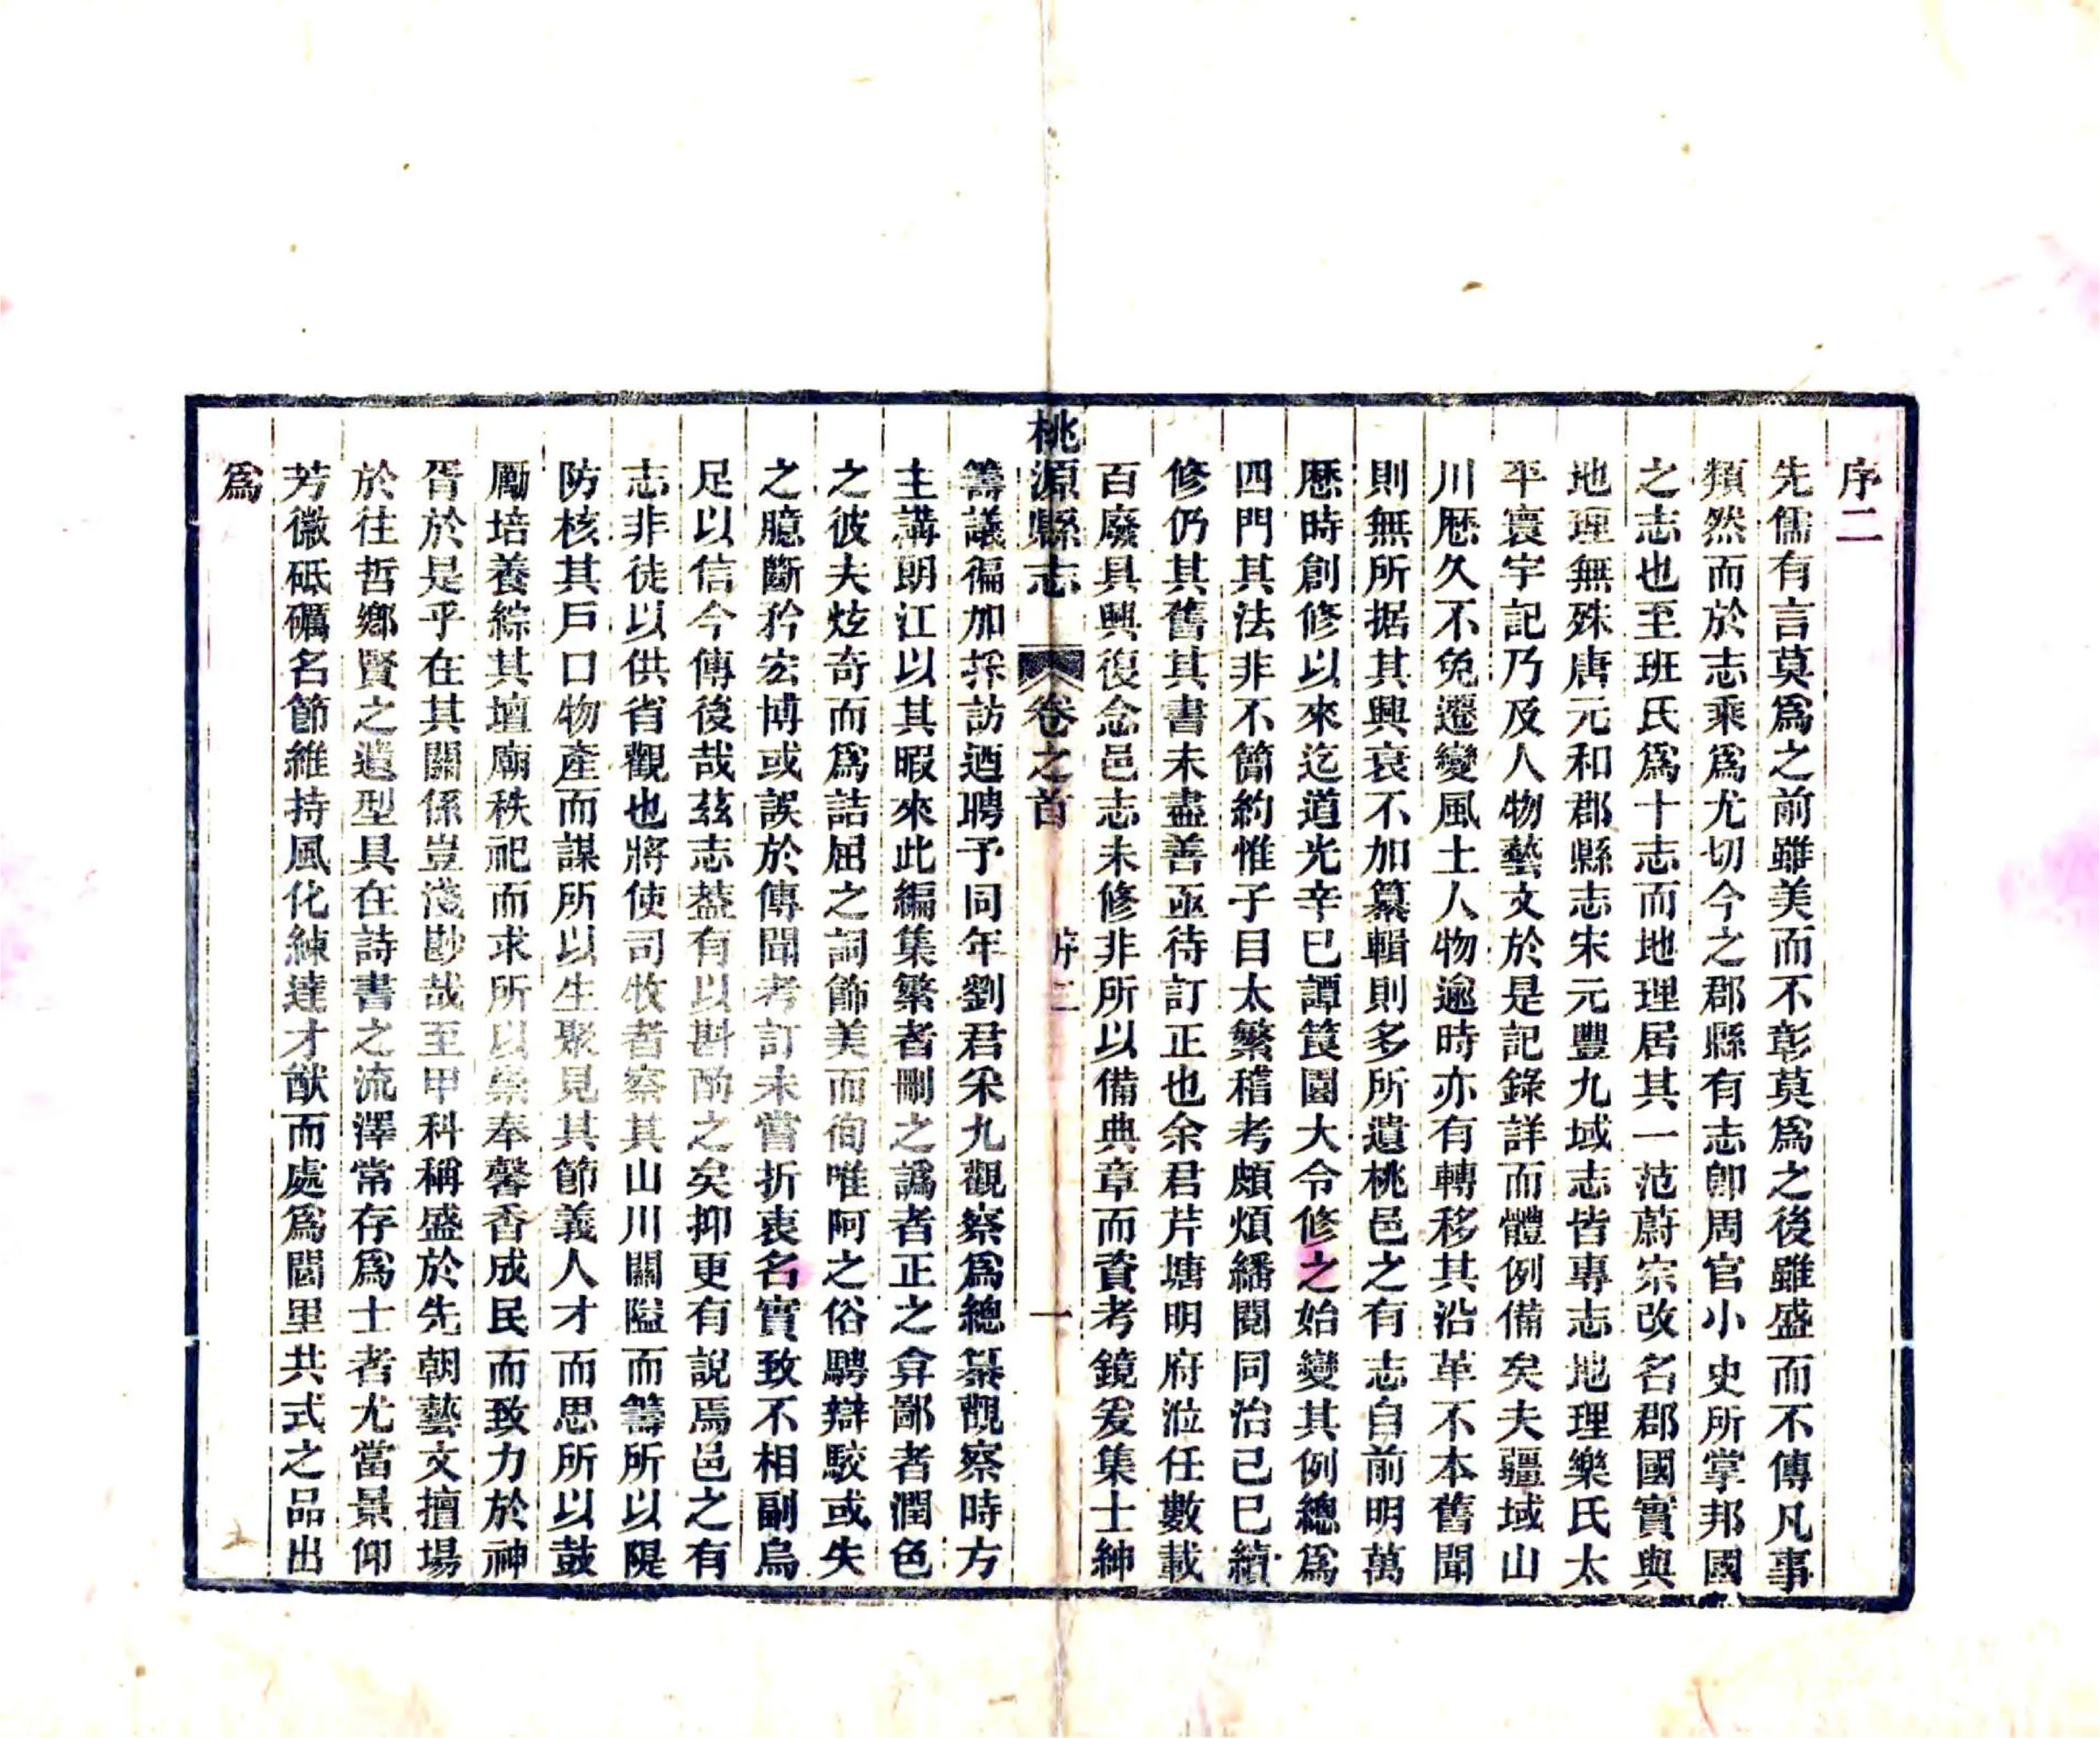 序二
先儒有言莫爲之前雖美而不彰莫爲之後雖盛而不傳凡事
類然而於志乘爲尤切今之郡縣有志卽周官小史所掌邦國
之志也至班氏爲十志而地理居其一范蔚宗改名郡國實與
地理無殊唐元和郡縣志宋元豐九域志皆專志地理樂氏太
平寰宇記乃及人物藝文於是記錄詳而體例備矣夫疆域山
川歷久不免遷變風土人物逾時亦有轉移其沿革不本舊聞
則無所据其興衰不加纂輯則多所遺桃邑之有志自前明萬
歷時創修以來迄道光辛巳譚筤園大令修之始變其例總爲
四門其法非不簡約惟子目太繁稽考頗煩繙閱同治己巳續
修仍其舊其書未盡善亟待訂正也余君芹塘明府涖任數載
百廢具興復念邑志未修非所以備典章而資考鏡爰集士紳
桃源縣志 卷之首 序二 一
籌議徧加採訪迺聘予同年劉君采九觀察爲總纂觀察時方
主講朗江以其暇來此編集繁者刪之譌者正之弇鄙者潤色
之彼夫炫奇而爲詰屈之詞飾美而徇唯阿之俗騁辯駮或失
之臆斷矜宏博或誤於傳聞考訂未嘗折衷名實致不相副烏
足以信今傳後哉茲志葢有以斟酌之矣抑更有說焉邑之有
志非徒以供省觀也將使司牧者察其山川關隘而籌所以隄
防核其戶口物產而謀所以生聚見其節義人才而思所以鼓
勵培養綜其壇廟秩祀而求所以崇奉馨香成民而致力於神
胥於是乎在其關係豈淺尠哉至甲科稱盛於先朝藝文擅場
於往哲鄉賢之遺型具在詩書之流澤常存爲士者尤當景仰
芳徽砥礪名節維持風化練達才猷而處爲閭里共式之品出
爲